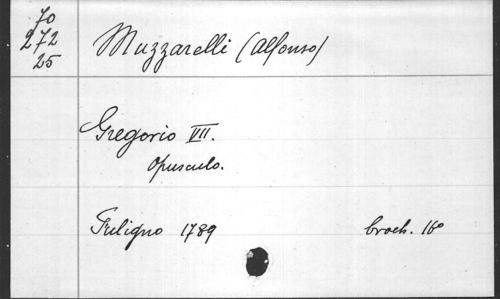 70
272
25
Muzzarelli (Alfonso)
Gregorio VII.
Opusculo.
Fuligno 1789 broch. 16°